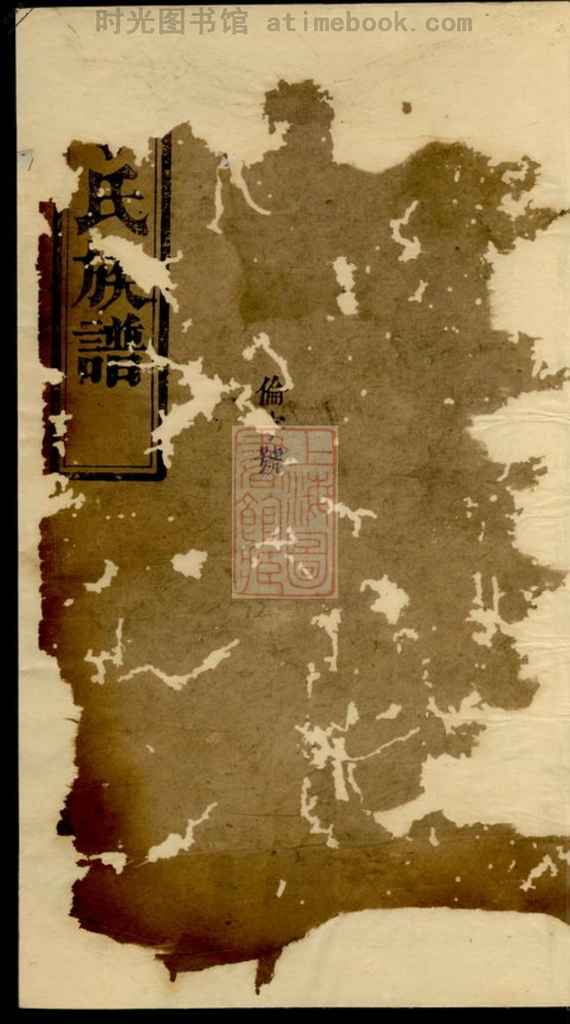 时光图书馆 atimebook.com
氏族譜
倫字號
上海圖
書館藏